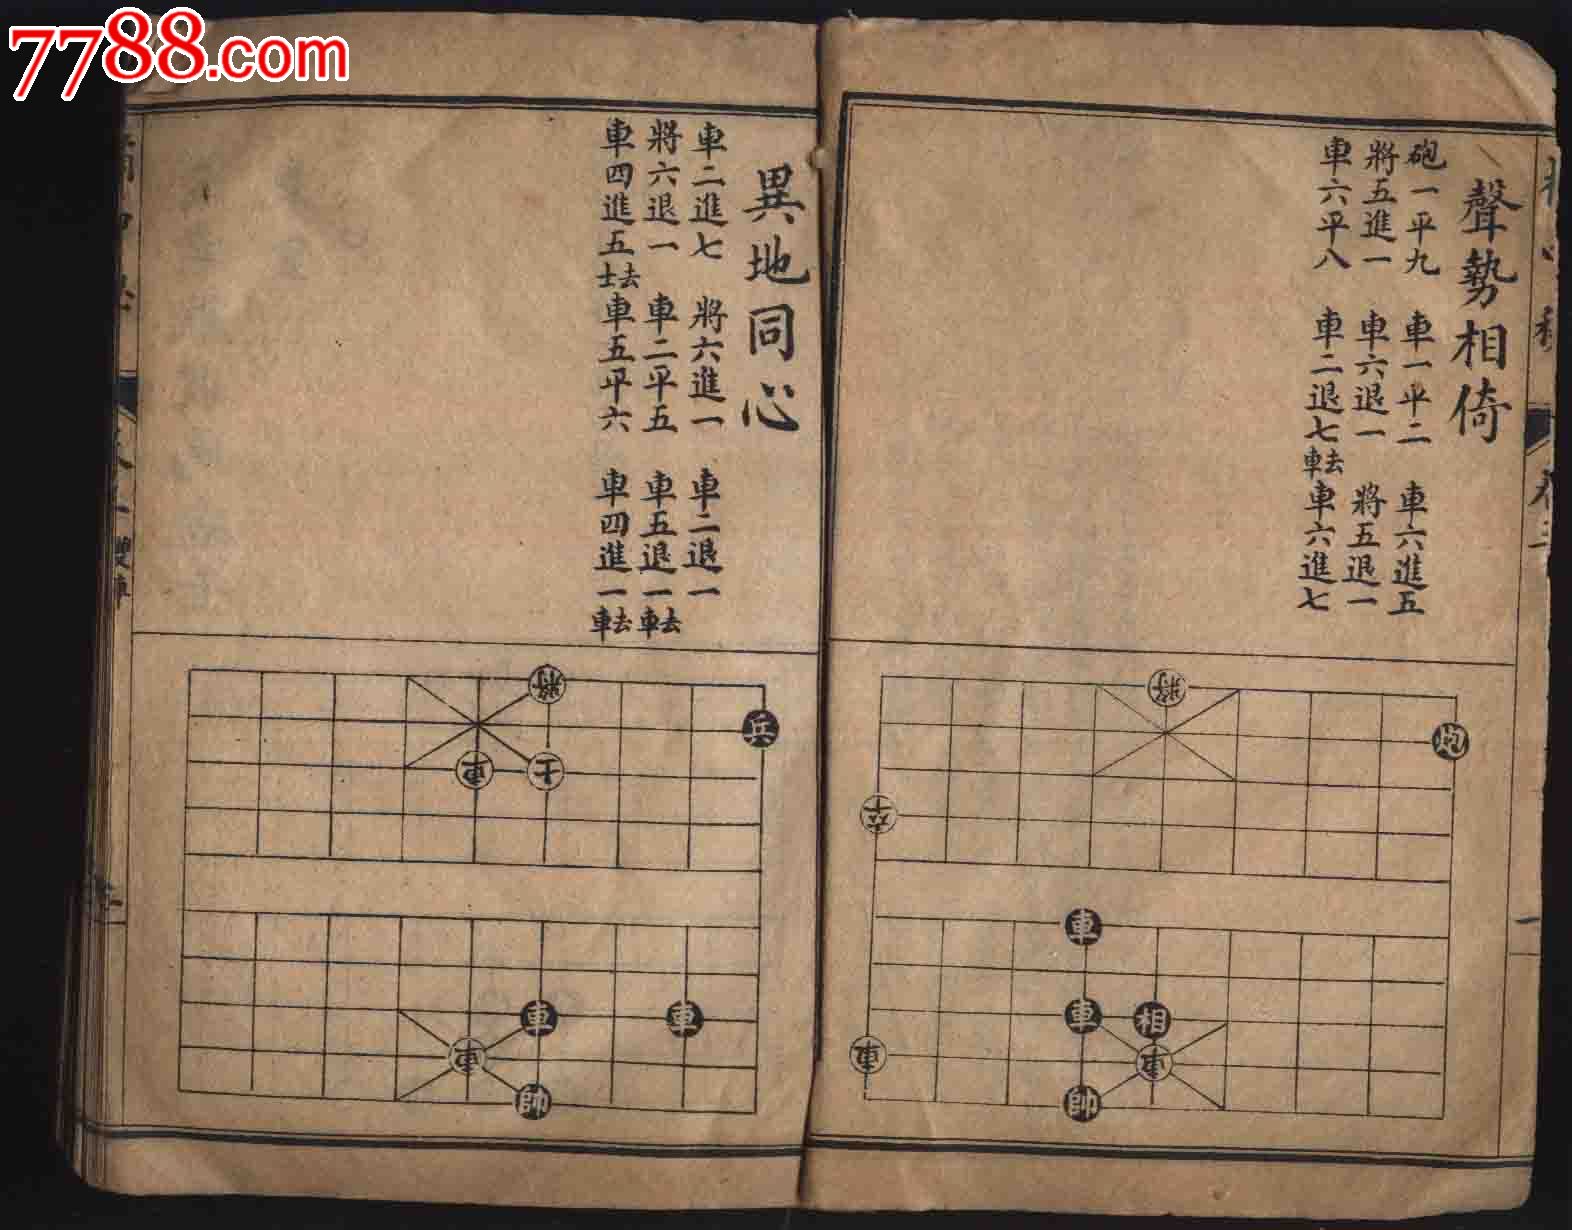 7788.com
聲勢相倚
砲一平九 車一平二 車六進五
將五進一 車六退一 將五退一
車六平八 車二退七去車 車六進七
將
炮
卒
車
車 相
車 車
帥
卷三
一
異地同心
車二進七 將六進一 車二退一
將六退一 車二平五 車五退一去車
車四進五去士 車五平六 車四進一去車
將
兵
車 士
車 車
車
帥
雙車